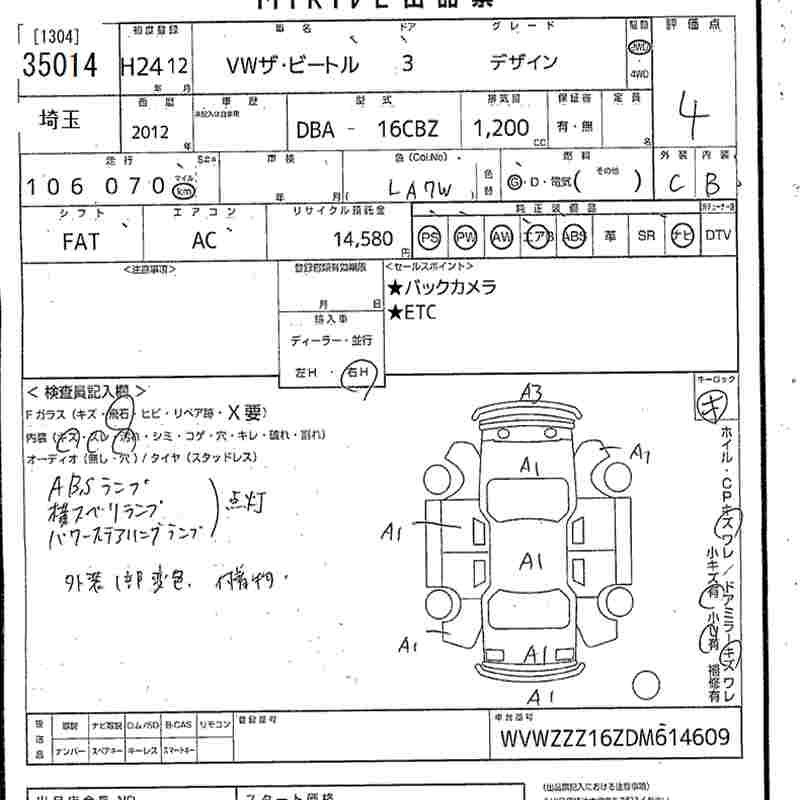 [1304]
35014
初度登録
車名
ドア
グレード
駆動
評価点
H24 12
年 月
VWザ・ビートル
3
デザイン
2WD
4WD
4
埼玉
西暦
車歴
型式
排気量
保証書
定員
2012
年
DBA - 16CBZ
1,200
CC
有・無
名
走行
車検
色(Col.No)
燃料
外装
内装
106070
マイル
km
年 月
LA7W
色替
G・D・電気( その他 )
C
B
シフト
エアコン
リサイクル預託金
純正装備品
FAT
AC
14,580
円
PS
PW
AW
エアB
ABS
革
SR
ナビ
DTV
<注意事項>
登録書類有効期限
<セールスポイント>
月 日
★バックカメラ
★ETC
輸入車
ディーラー・並行
左H ・ 右H
< 検査員記入欄 >
Fガラス (キズ・飛石・ヒビ・リペア跡・X要)
内装 (キズ・スレ・汚れ・シミ・コゲ・穴・キレ・破れ・割れ)
オーディオ (無し・穴) / タイヤ (スタッドレス)
キーロック
キ
ABSランプ
横スベリランプ
パワーステアリングランプ
点灯
外装1部変色、付着物.
A3
A1
A1
A1
A1
A1
A1
A1
ホイル・CPキズワレ/ドアミラーキズワレ
小キズ有 小凹有 補修有
後送品
取説
ナビ取説
B-CAS
リモコン
ナンバー
スペアキー
キーレス
スマートキー
登録番号
車台番号
WVWZZZ16ZDM614609
スタート価格
(出品票記入における注意事項)